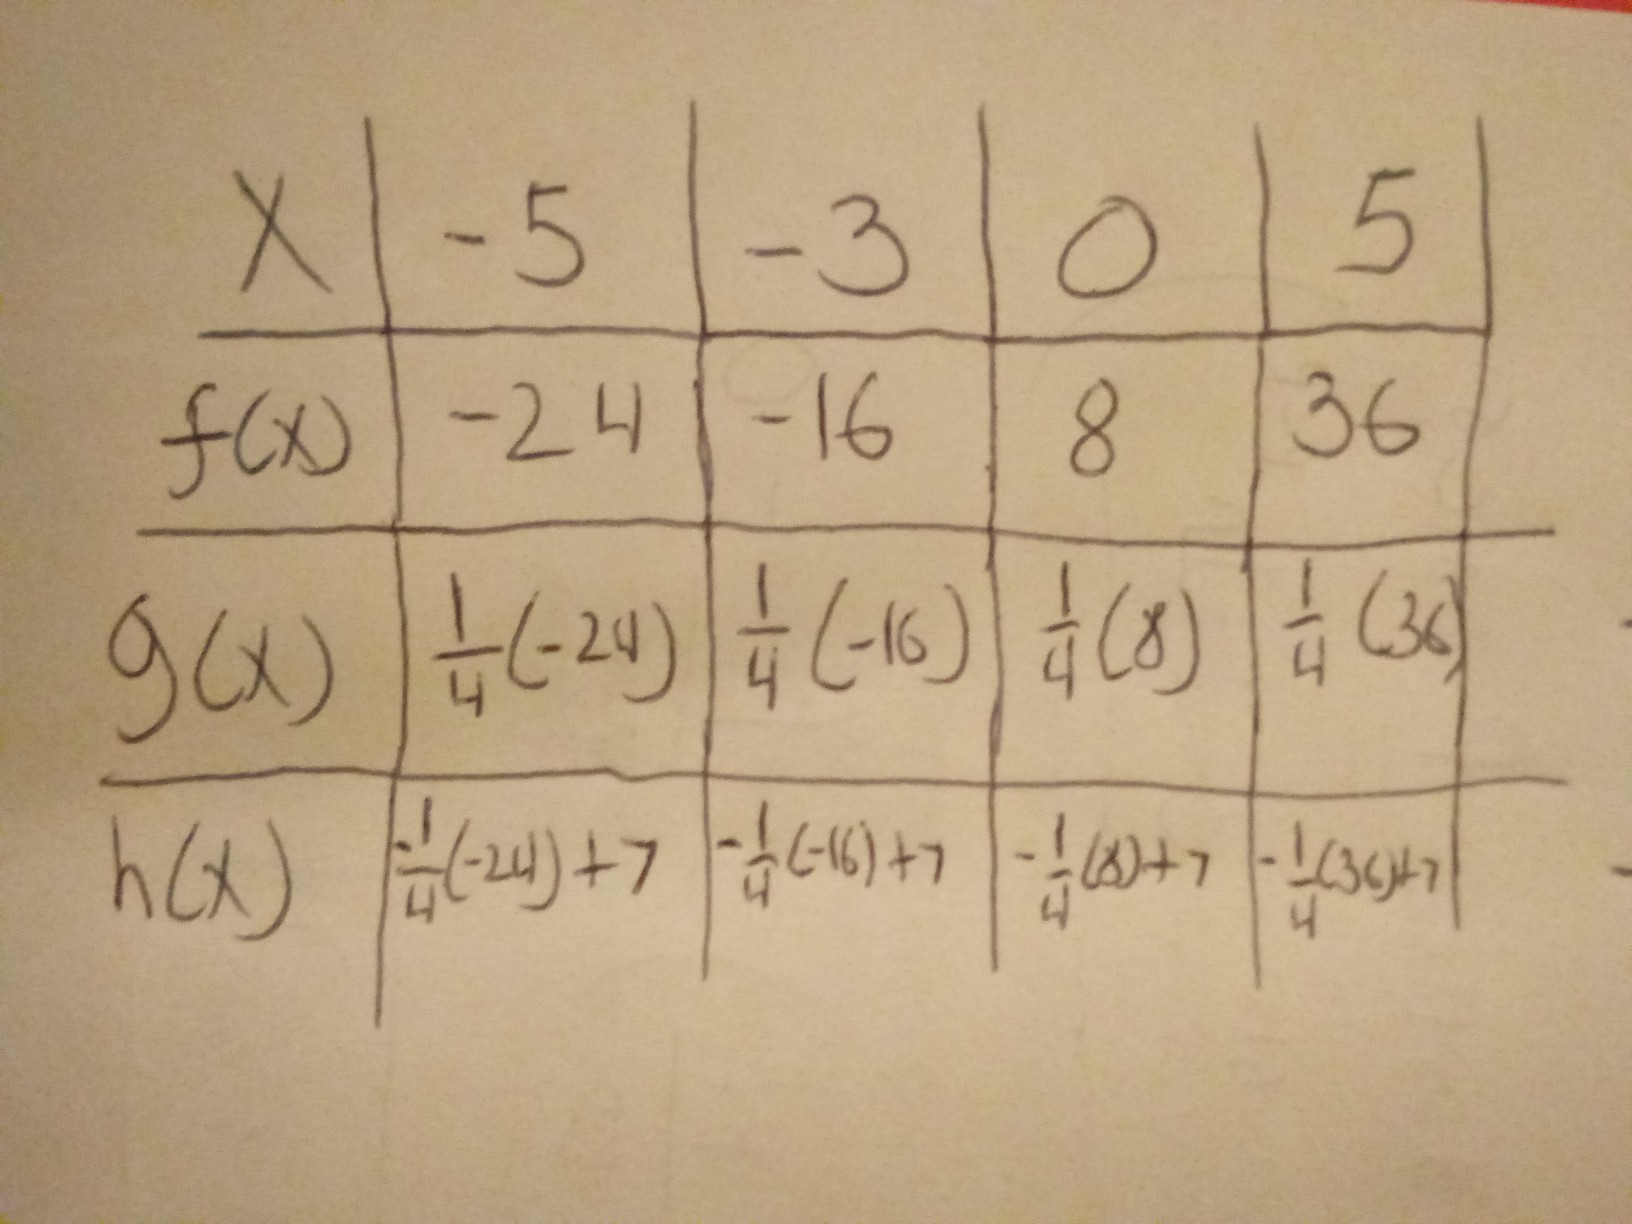 X -5 -3 0 5
f(x) -24 -16 8 36
g(x) 1/4(-24) 1/4(-16) 1/4(8) 1/4(36)
h(x) -1/4(-24)+7 -1/4(-16)+7 -1/4(8)+7 -1/4(36)+7